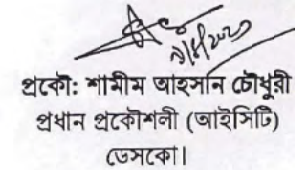 প্রকৌ: শামীম আহসান চৌধুরী
প্রধান প্রকৌশলী (আইসিটি)
ডেসকো।